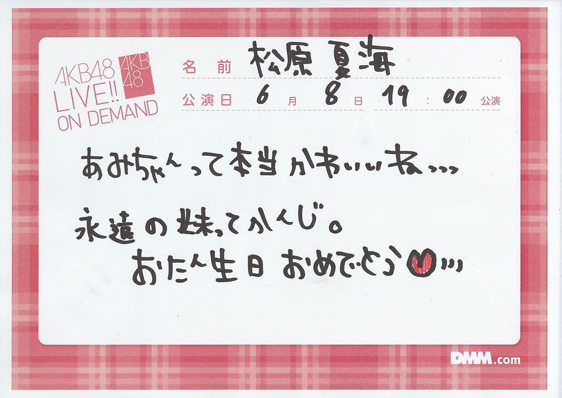 AKB48
LIVE!!
ON DEMAND
AKB
48
名前 松原夏海
公演日 6月8日 19:00 公演
あみちゃんって本当かわいいね…
永遠の妹ってかんじ。
おたん生日おめでとう♥…
DMM.com